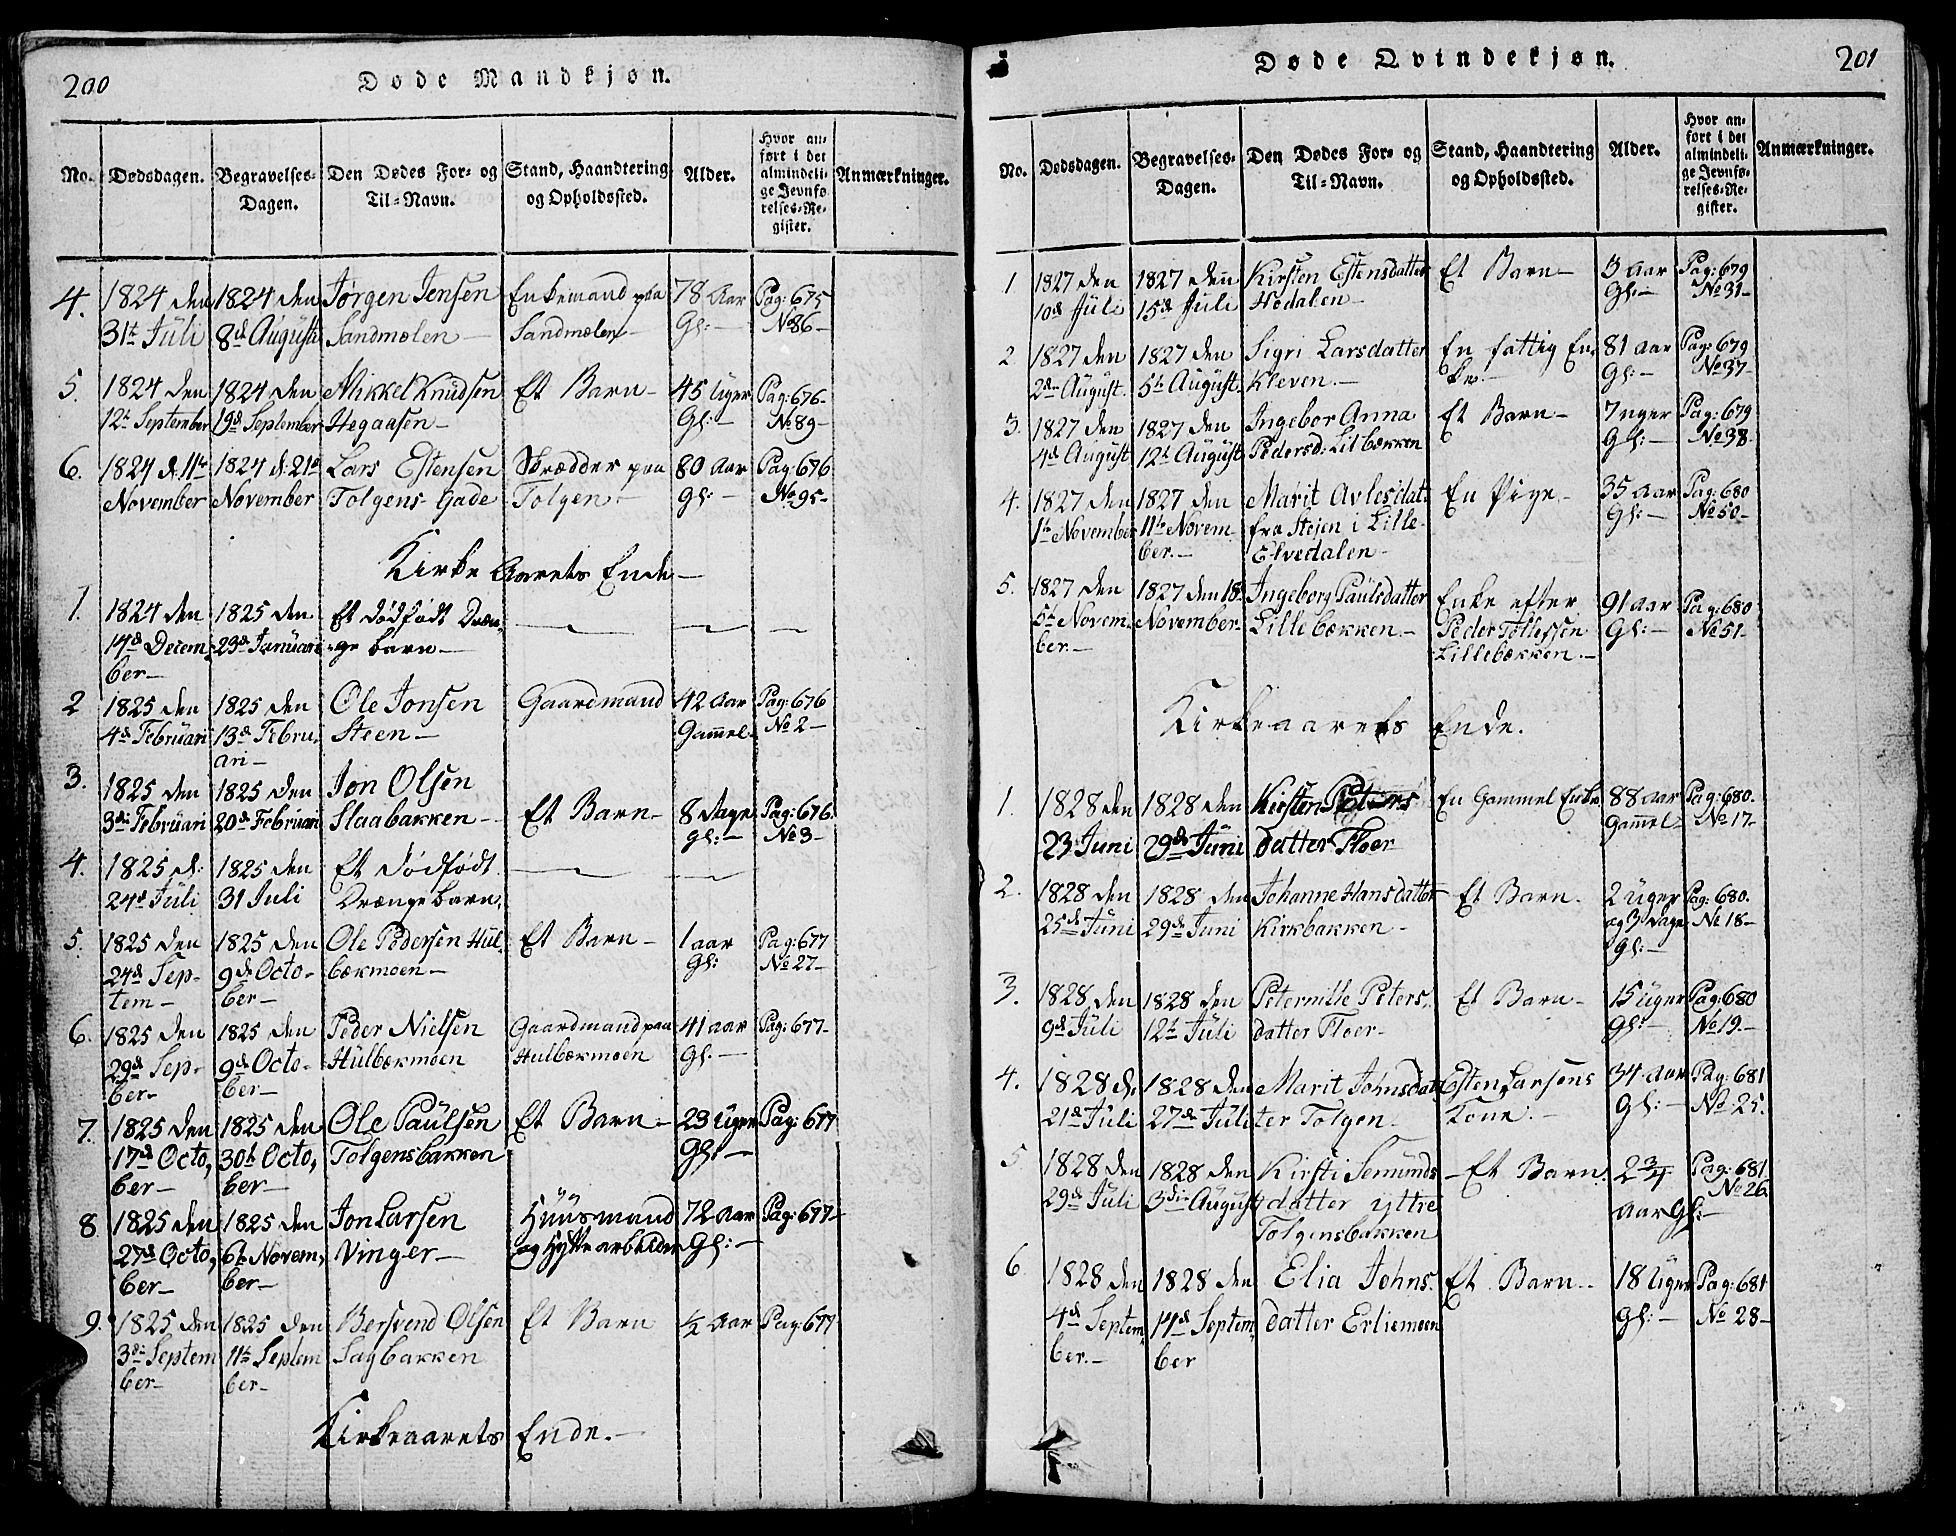 200
Døde Mandkjøn.
No. Dødsdagen. Begravelses-Dagen. Den Dødes For- og Til-Navn. Stand, Haandtering og Opholdssted. Alder. Hvor anført i det almindelige Jevnførelses-Register. Anmærkninger.
4. 1824 den 1824 den Jørgen Jensen Enkemand paa 78 Aar Pag: 675
31te Juli 8de Augusti Sandmølen Sandmølen Gl: No 86
5. 1824 den 1824 den Mikkel Knudsen Et Barn 45 Uger Pag: 676
12te September 19de September Hegaasen Gl: No 89
6. 1824 d: 11te 1824 d: 21de Lars Estensen Skrædder paa 80 Aar Pag: 676
November November Tolgens Gade Tolgen Gl: No 95
Kirke Aarets Ende
1. 1824 den 1825 den Et dødfødt Dræn-
14de Decem- 23de Januari ge barn
ber
2 1825 den 1825 den Ole Jonsen Gaardmand 42 Aar Pag: 676
4de Februari 13de Febru- Steen Gammel No 2
ari
3. 1825 den 1825 den Jon Olsen Et Barn 8 Dage Pag: 676.
3die Februari 20de Februari Slaabakken gl: No 3
4. 1825 d: 1825 den Et dødfødt
24de Juli 31 Juli Drænge barn.
5. 1825 den 1825 den Ole Pedersen Hul- Et Barn 1 aar Pag: 677
24de Sep- 9de Octo- bækmoen Gl: No 27
tem ber
6. 1825 den 1825 den Peder Nielsen Gaardmand paa 41 aar Pag: 677
29de Sep- 9de Octo- Hulbækmoen Hulbækmoen Gl.
ber ber
7. 1825 den 1825 den Ole Paulsen Et Barn 23 Uger Pag: 677
17de Octo, 30te Octo, Tolgensbakken Gl:
ber ber
8. 1825 den 1825 den Jon Larsen Huusmand 72 Aar Pag: 677
27de Octo, 6te Novem, Vinger og Hytte arbeider Gl:
ber ber
9. 1825 den 1825 den Bersvend Olsen Et Barn ½ Aar Pag: 677
3die Septem 11te Septem Sagbakken
ber ber
Kirkeaarets Ende.
Døde Qvindekjøn.
201
No. Dødsdagen. Begravelses-Dagen. Den Dødes For- og Til-Navn. Stand, Haandtering og Opholdssted. Alder. Hvor anført i det almindelige Jevnførelses-Register. Anmærkninger.
1 1827 den 1827 den Kirsten Estensdatter Et Barn 3 Aar Pag: 679
10de Juli 15de Juli Hodalen Gl: No 31
2 1827 den 1827 den Sigri Larsdatter En fattig En- 81 aar Pag: 679
2den August. 5te August. Kleven. ke Gl: No 37
3. 1827 den 1827 den Ingebor Anna Et Barn 7 uger Pag: 679
4de August 12te August Pedersd: Lilbækken Gl: No 38
4. 1827 den 1827 den Marit Avlesdat. En Pige 35 Aar Pag: 680
1te November 11te Novem- fra Steien i Lille Gl: No 50
ber. Elvedalen
5. 1827 den 1827 den 18. Ingeborg Paulsdatter Enke efter 91 Aar Pag: 680
5te Novem- November Lillebækken. Peder Tollefsen Gl: No 51
ber. Lillebækken.
Kirkeaarets Ende.
1. 1828 den 1828 den Kirsten Peters En Gammel Enke, 88 aar Pag: 680.
23 Juni 29de Juni datter Floer Gammel No 17
2. 1828 den 1828 den Johanne Hansdatter Et Barn. 2 Uger Pag: 680.
25de Juni 29de Juni Kirkbakken og 3 Dage No 18
Gl:
3. 1828 den 1828 den Peternille Peters, Et Barn 15 Uger Pag: 680
9de Juli 12te Juli datter Floer Gl: No 19
4. 1828 d. 1828 den Marit Johnsdat Esten Larsens 34 Aar Pag: 681
21de Juli 27de Juli ter Tolgen Kone. Gl: No 25.
5 1828 den 1828 den Kirsti Semunds Et Barn. 2¾ Pag: 681.
29de Juli 3die August datter yttre Aar Gl: No 26
Tolgensbakken
6 1828 den 1828 den Elia Johns. Et Barn 18 Uger Pag: 681
4de Septem, 14de Septem, datter Erliemoen Gl: No 28
ber. ber